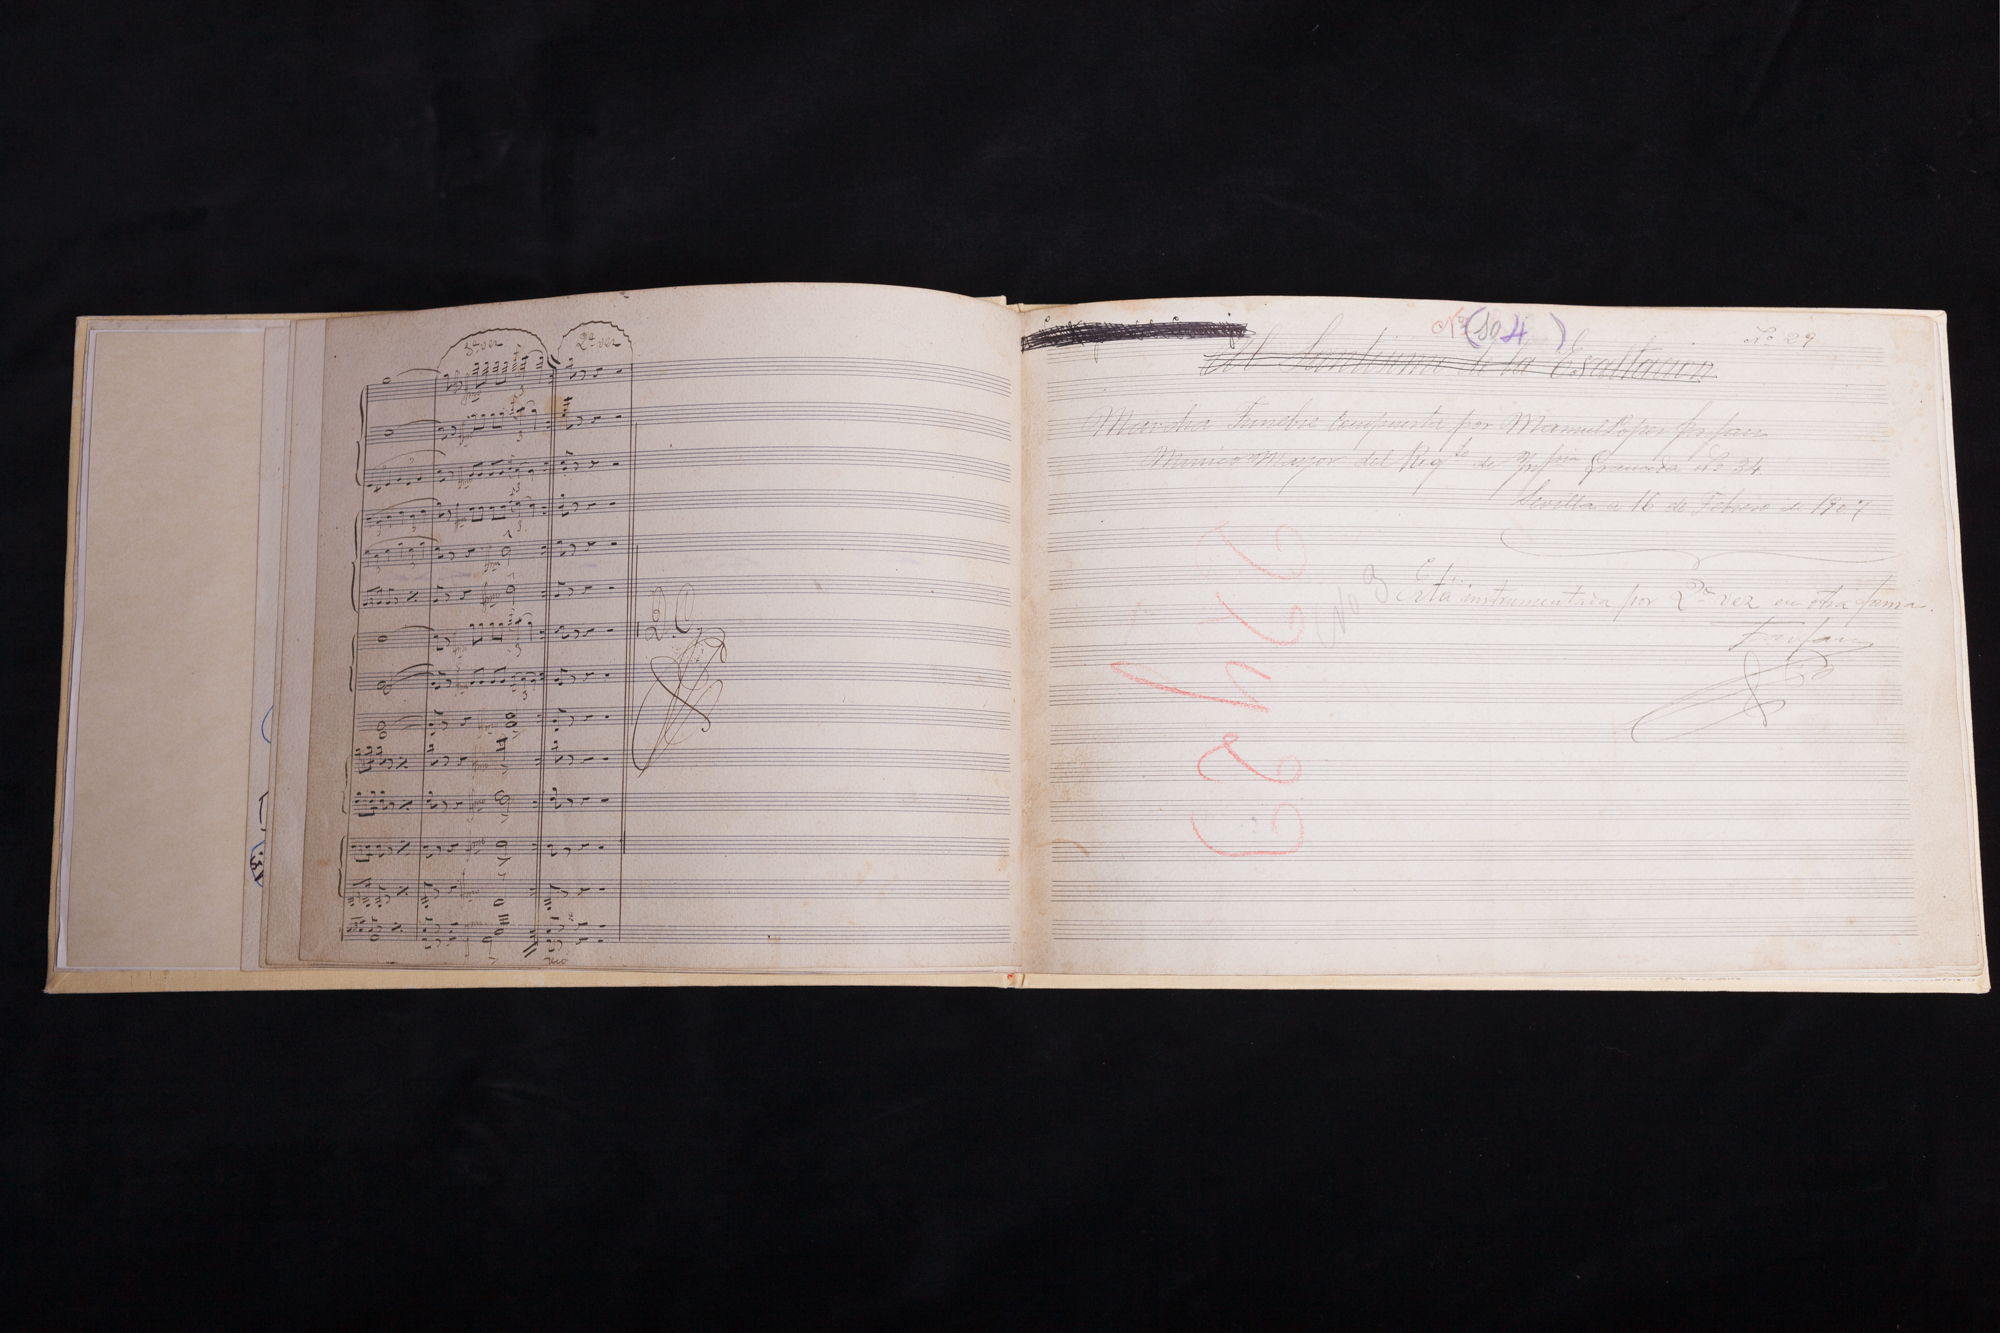 3ª vez
2ª vez
D.C.
Nº (104)
Nº 29
Al Santísimo de la Esaltación
Marcha Fúnebre Compuesta por Manuel López Farfan
Músico Mayor del Regto de Infria Granada nº 34
Sevilla a 16 de Febrero de 1907
Nº 3
Está instrumentada por 2ª vez en otra forma.
Farfan